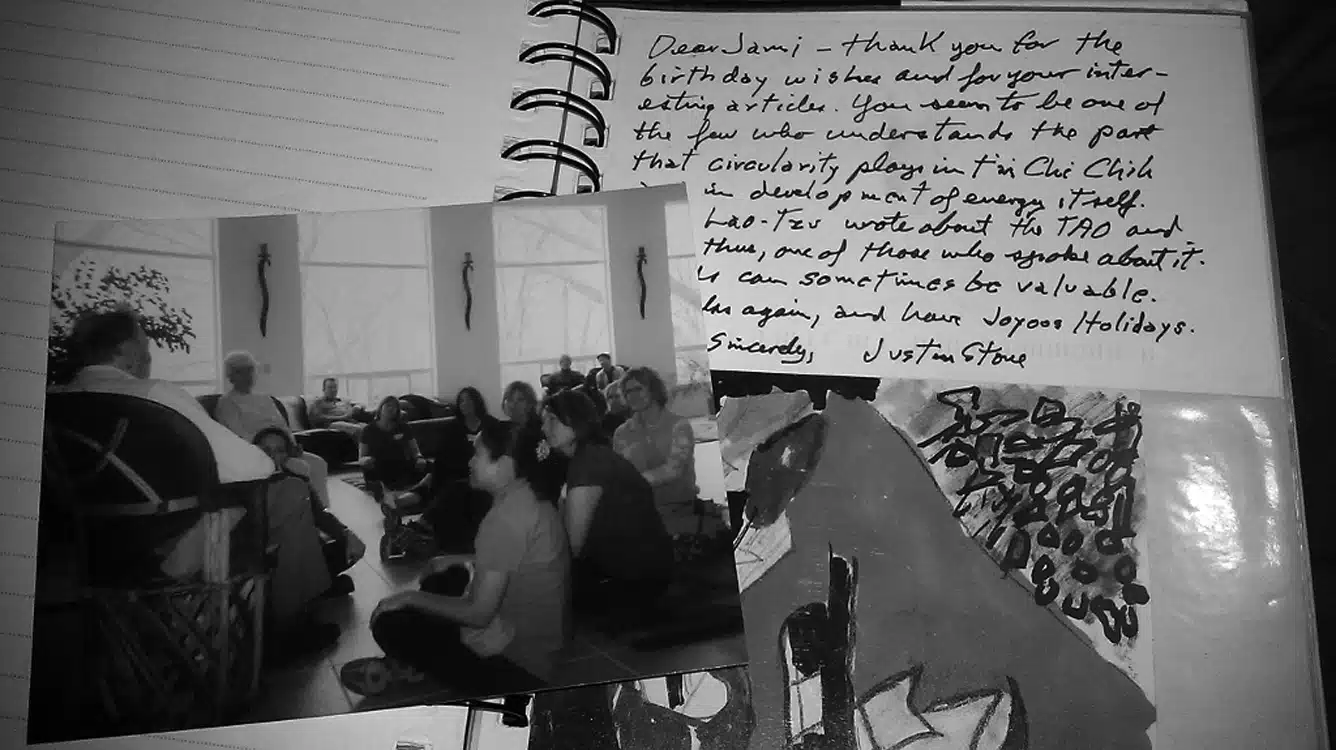 Dear Jami - thank you for the
birthday wishes and for your inter-
esting articles. You seem to be one of
the few who understands the part
that circularity plays in T'ai Chi Chih
in development of energy itself.
Lao-Tzu wrote about the TAO and
thus, one of those who spoke about it.
can sometimes be valuable.
again, and have Joyous Holidays.
Sincerely, Justin Stone